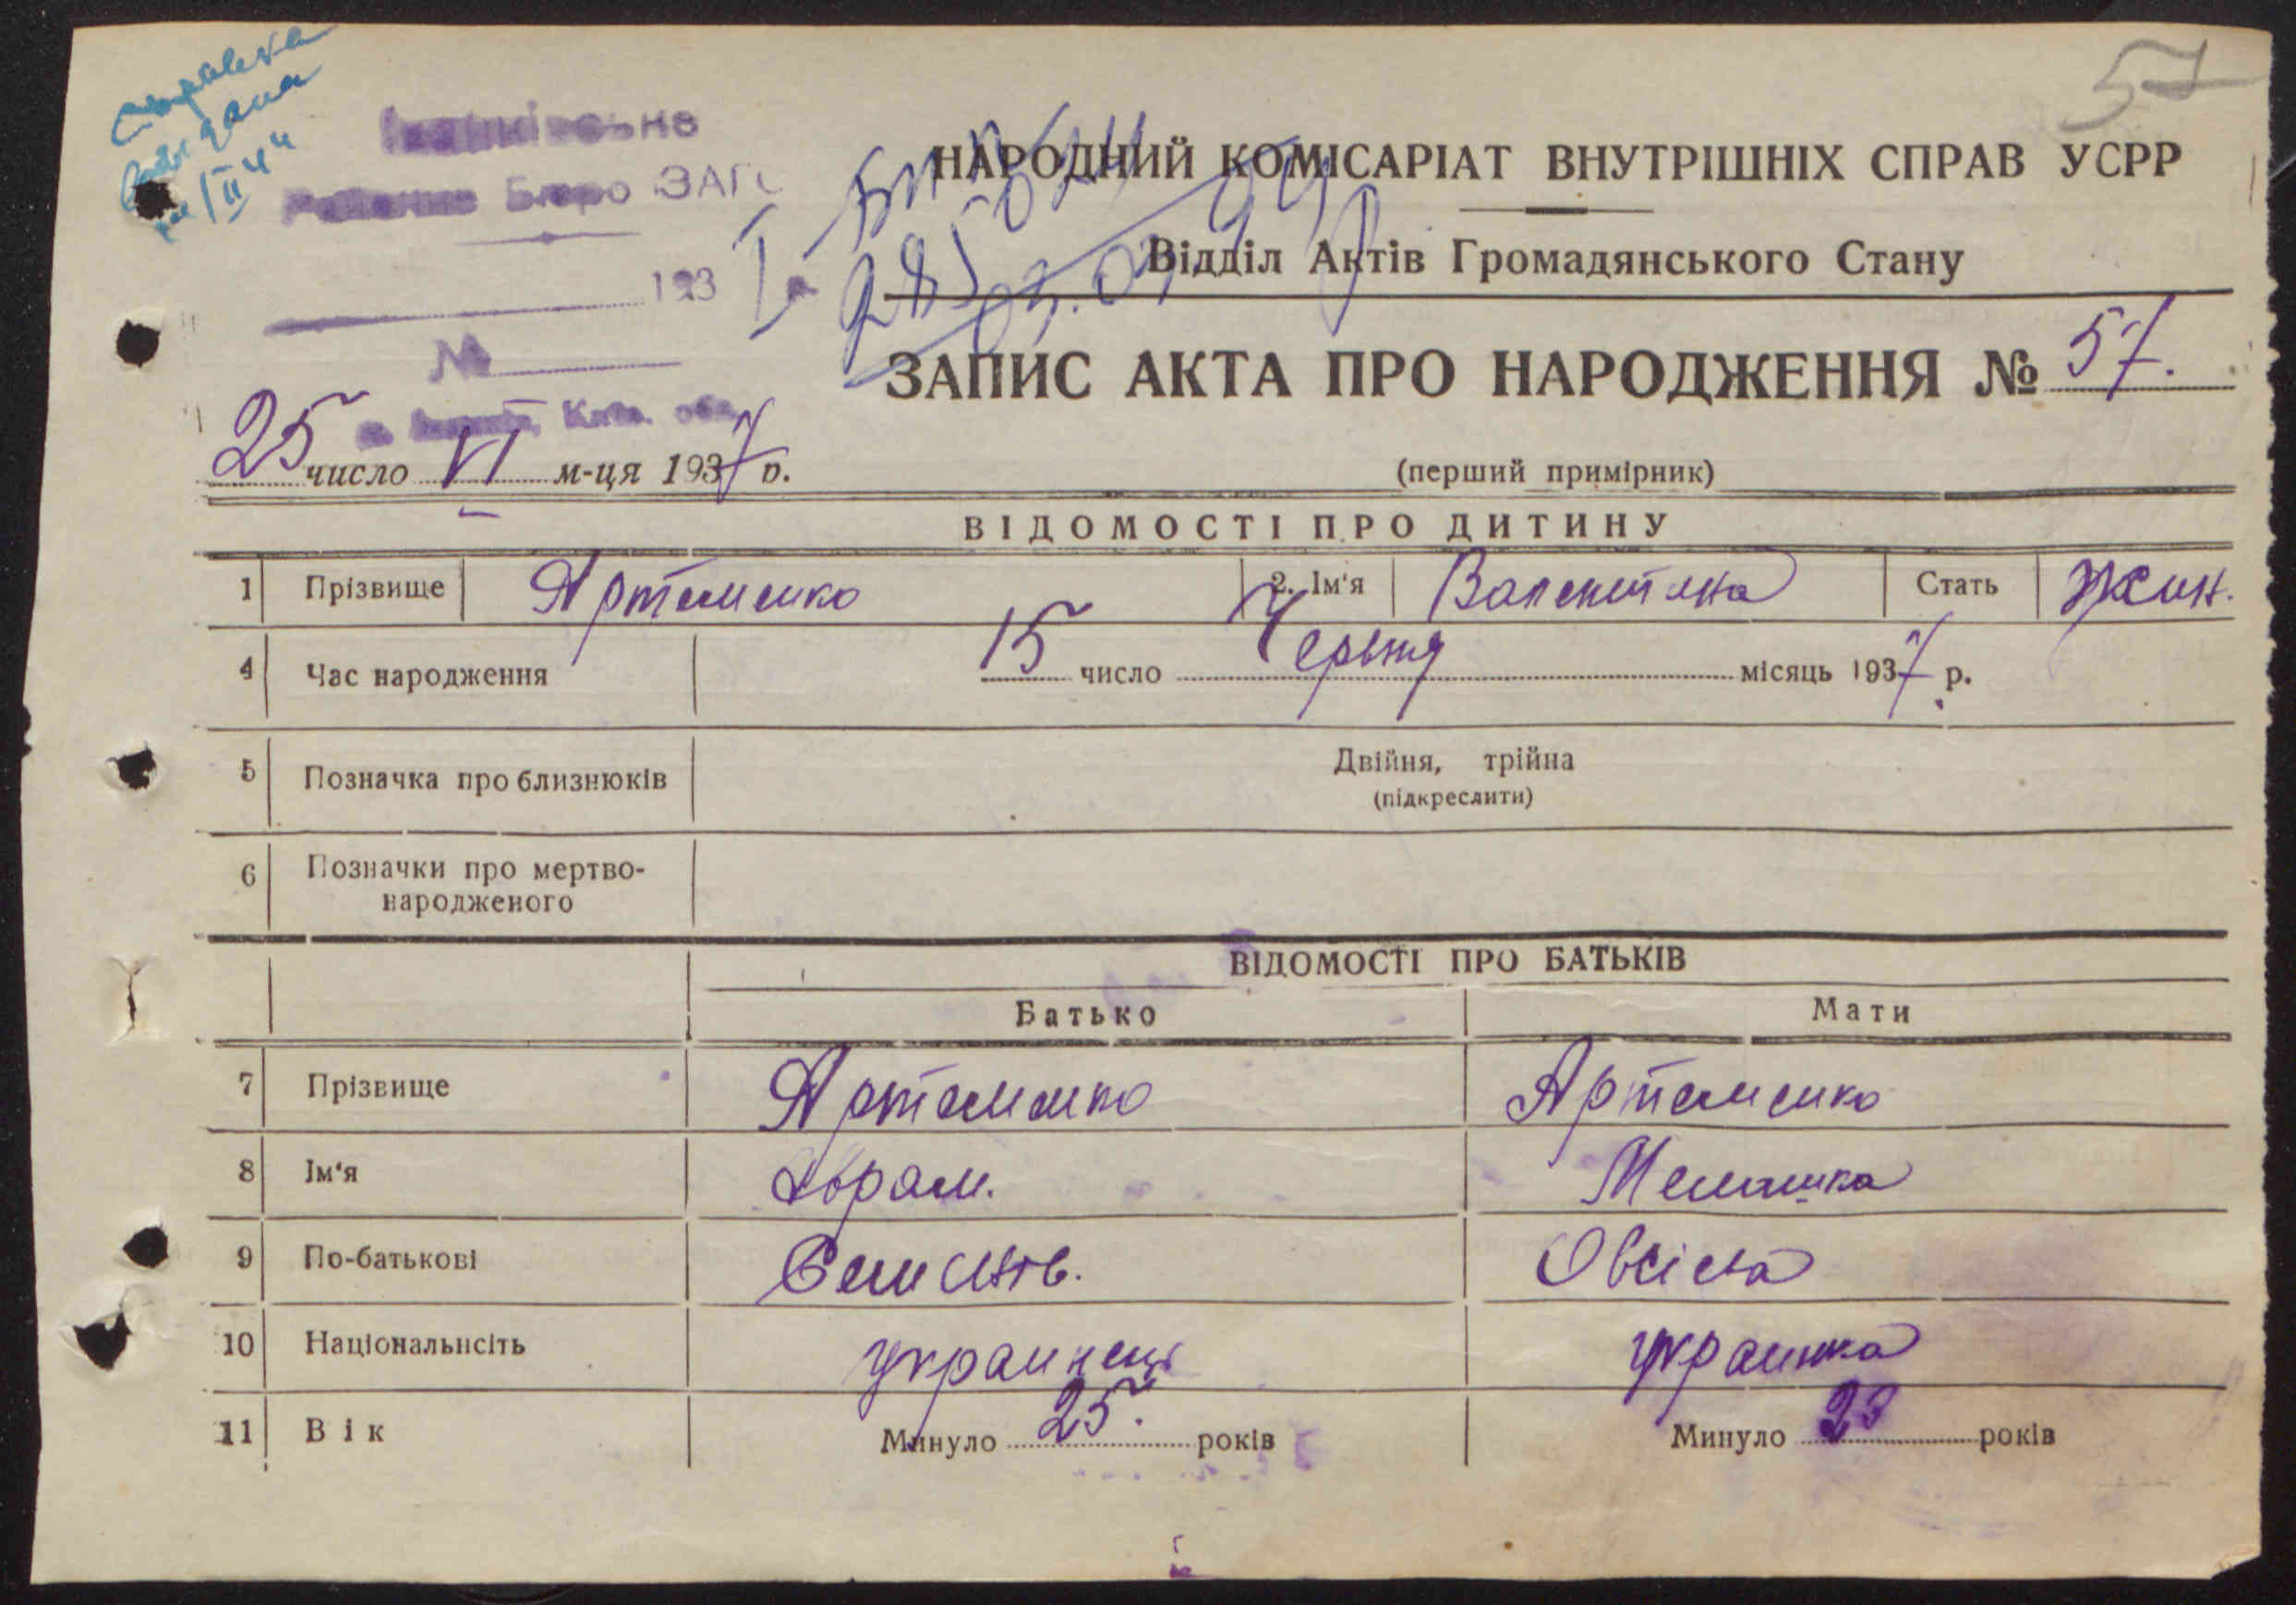 57
Бюро ЗАГС
193
№
Київ. обл.
НАРОДНИЙ КОМІСАРІАТ ВНУТРІШНІХ СПРАВ УСРР
Відділ Актів Громадянського Стану
ЗАПИС АКТА ПРО НАРОДЖЕННЯ № 57.
25 число VI м-ця 1937 р.
(перший примірник)
ВІДОМОСТІ ПРО ДИТИНУ
1 Прізвище Артеменко 2. Ім'я Валентина Стать жін.
4 Час народження 15 число Червня місяць 1937 р.
5 Позначка про близнюків Двійня, трійна
(підкреслити)
6 Позначки про мертво-
народженого
ВІДОМОСТІ ПРО БАТЬКІВ
Батько Мати
7 Прізвище Артеменко Артеменко
8 Ім'я Аврам. Мелашка
9 По-батькові Семенов. Овсієва
10 Національнсіть украинець украинка
11 Вік Минуло 25. років Минуло 23 років